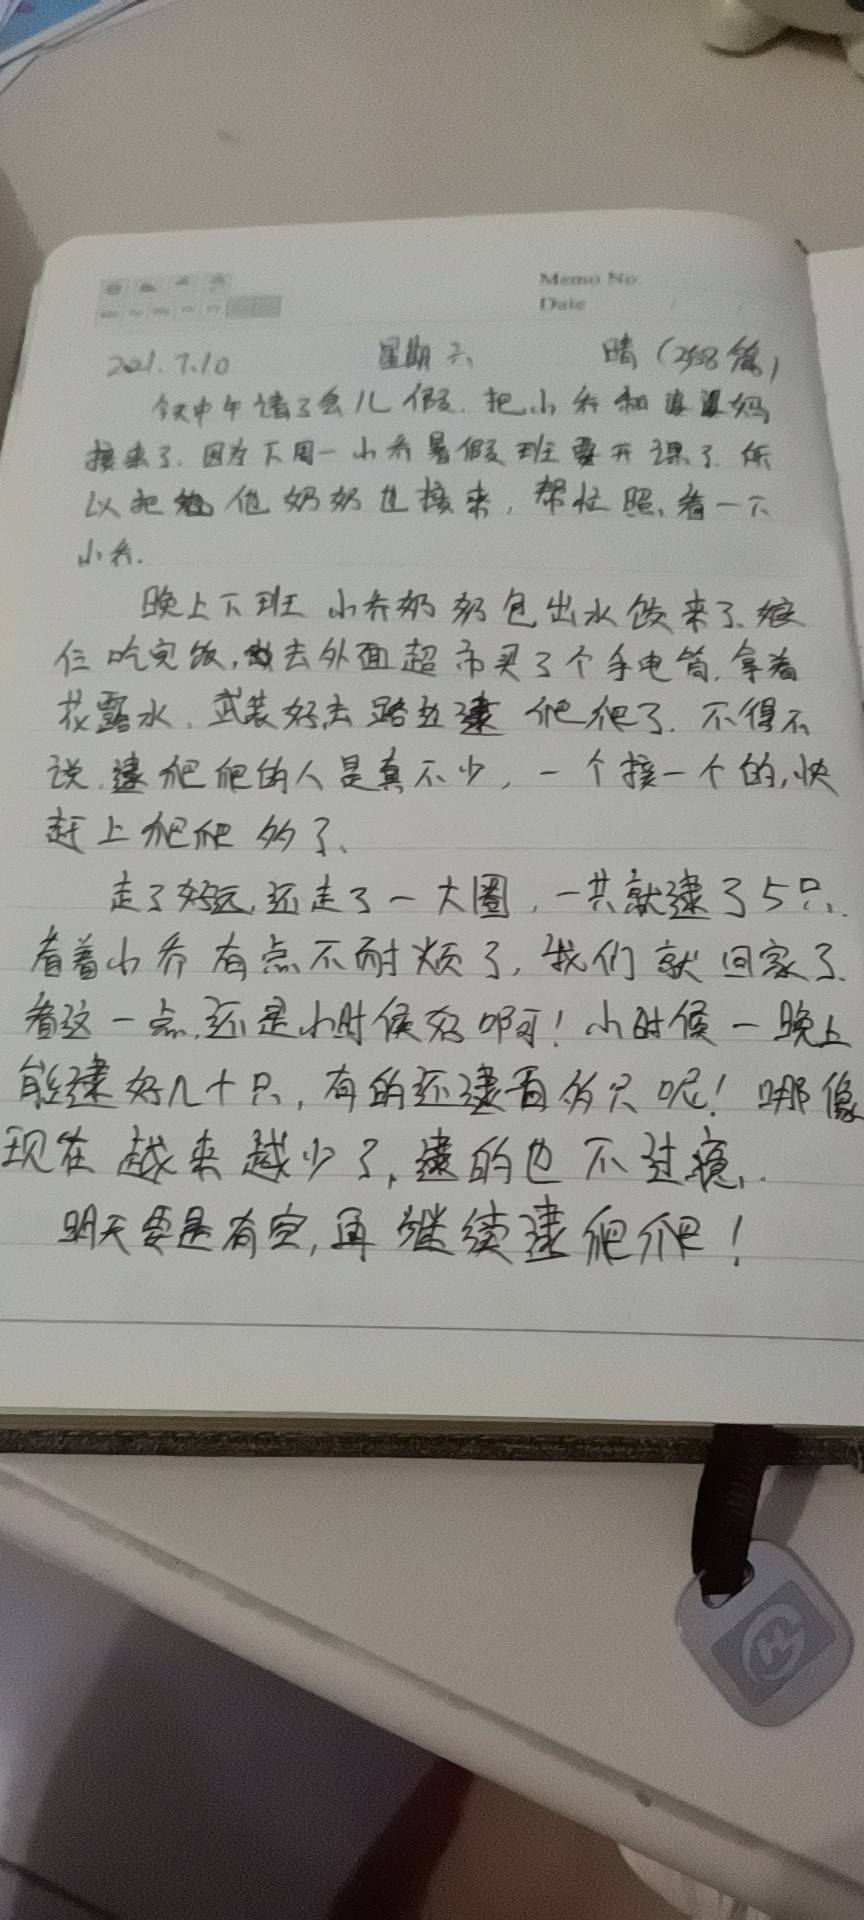 Memo No.
Date / /
2021.7.10 星期六 晴(2558篇)
今天中午请了会儿假.把小乔和婆婆妈
接来了.因为下周一小乔暑假班要开课了.所
以把他奶奶也接来,帮忙照看一下
小乔.
晚上下班小乔奶奶包出水饺来了.娘
仨吃完饭,去外面超市买了个手电筒,拿着
花露水.武装好,去路边逮爬爬了.不得不
说,逮爬爬的人是真不少,一个接一个的,快
赶上爬爬多了.
走了好远,还走了一大圈,一共就逮了5只.
看着小乔有点不耐烦了,我们就回家了.
看这一点,还是小时候好啊!小时候一晚上
能逮好几十只,有的还逮百多只呢!哪像
现在越来越少了,逮的也不过瘾.
明天要是有空,再继续逮爬爬!